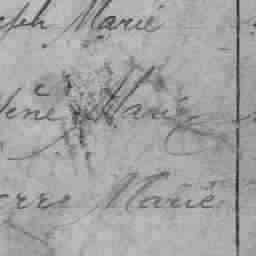 eph Marie
ène Marie
erre Marie